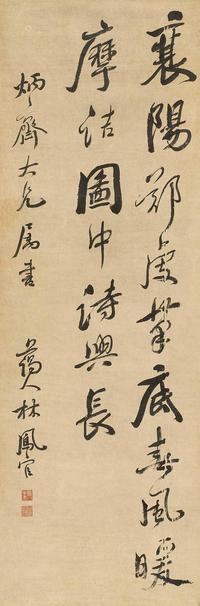 襄陽鄭虔筆底春風暖
摩詰圖中詩興長
炳齋大兄属書
藹人林鳳官